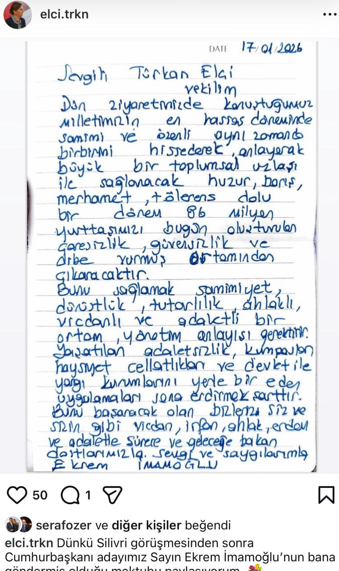 elci.trkn
DATE 17/01/2026
Sevgili Türkan Elçi
vekilim
Dün ziyaretinizde konuştuğumuz
milletimizin en hassas döneminde
samimi ve özenli aynı zamanda
birbirini hissederek, anlayarak
büyük bir toplumsal uzlaşı
ile sağlanacak huzur, barış,
merhamet, tölerens dolu
bir dönem 86 milyon
yurttaşımızı bugün oluşturulan
çaresizlik, güvensizlik ve
dibe vurmuş ortamından
çıkaracaktır.
Bunu sağlamak samimiyet,
dürüstlük, tutarlılık, ahlaklı,
vicdanlı ve adaletli bir
ortam, yönetim anlayışı gerektirir.
Yaşatılan adaletsizlik, kumpasları
haysiyet cellatlıkları ve devlet ile
yargı kurumlarını yerle bir eden
uygulamaları sona erdirmek şarttır.
Bunu başaracak olan bizleriz siz ve
sizin gibi vicdan, irfan, ahlak, erdem
ve adaletle sürece ve geleceğe bakan
dostlarımızla. Sevgi ve saygılarımla
Ekrem İMAMOĞLU
50 1
serafozer ve diğer kişiler beğendi
elci.trkn Dünkü Silivri görüşmesinden sonra
Cumhurbaşkanı adayımız Sayın Ekrem İmamoğlu'nun bana
göndermiş olduğu mektubu paylaşıyorum.